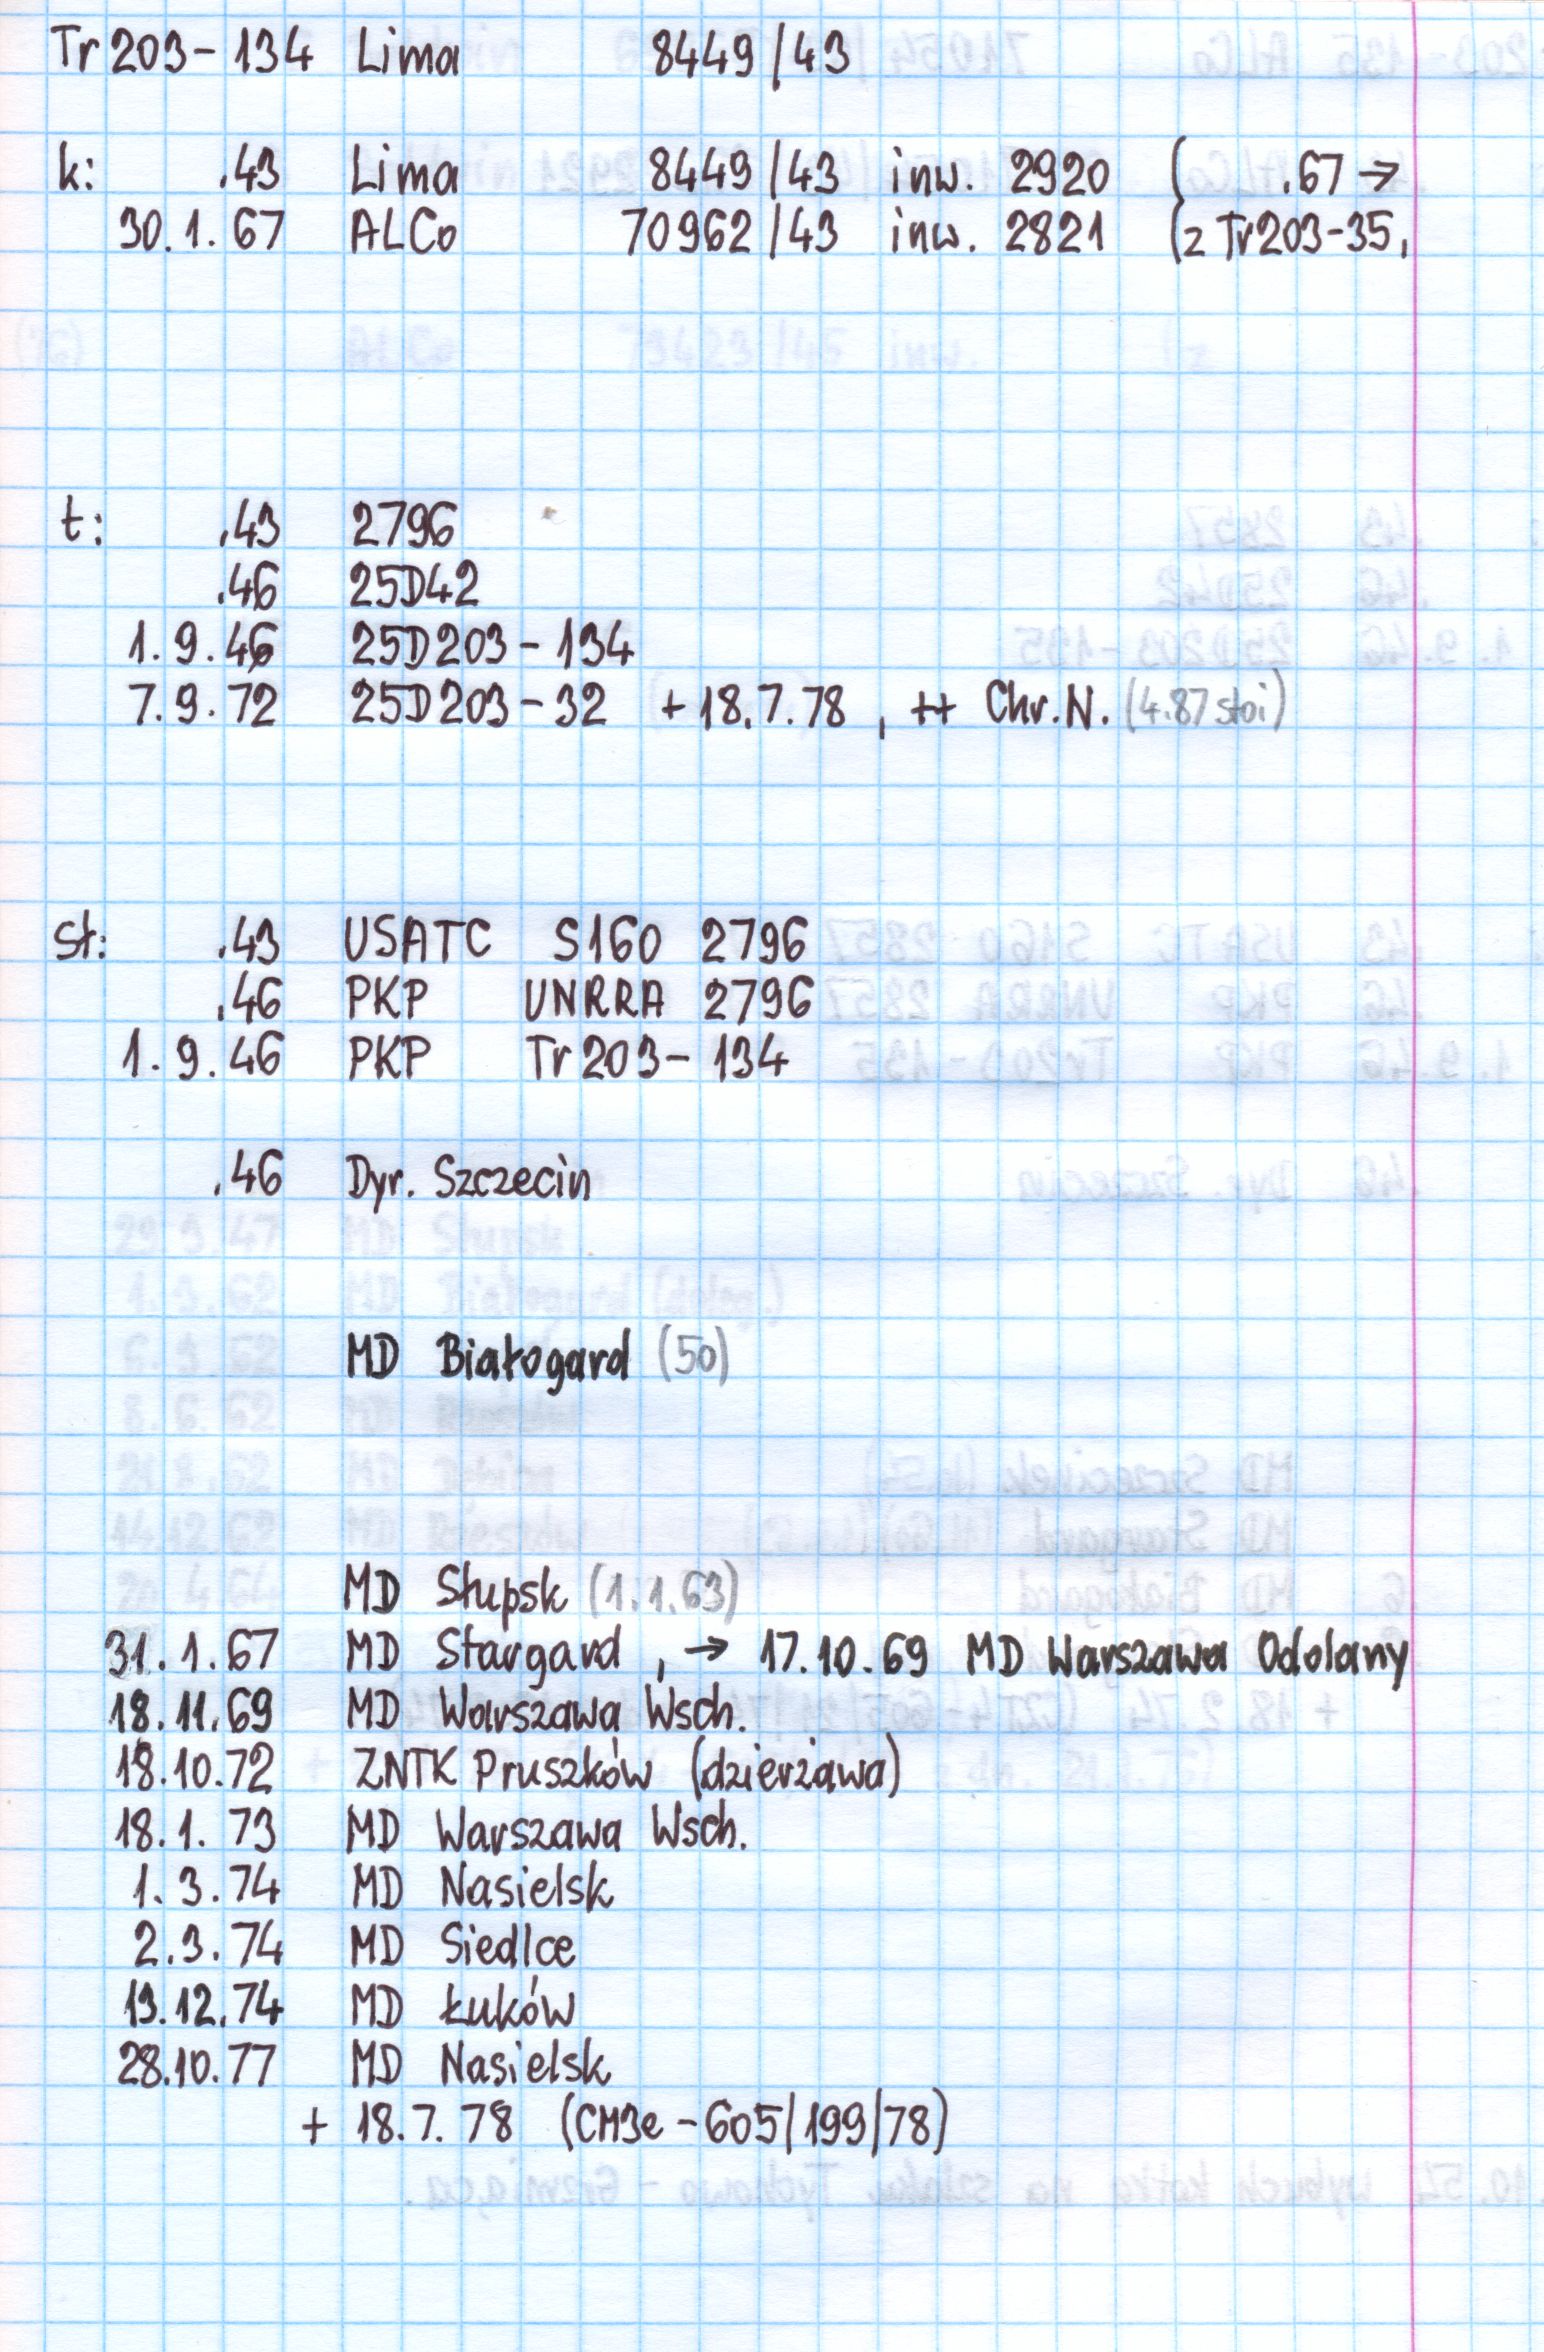 Tr203-134 Lima 8449/43
k: .43 Lima 8449/43 inw. 2920 ( .67 →
30.1.67 ALCo 70962/43 inw. 2821 (z Tr203-35,
t: .43 2796
.46 25D42
1.9.46 25D203-134
7.9.72 25D203-32 +18.7.78, ++ Chr.N. (4.87 stoi)
st: .43 USATC S160 2796
.46 PKP UNRRA 2796
1.9.46 PKP Tr203-134
.46 Dyr. Szczecin
MD Białogard (50)
MD Słupsk (1.1.63)
31.1.67 MD Stargard, → 17.10.69 MD Warszawa Odolany
18.11.69 MD Warszawa Wsch.
18.10.72 ZNTK Pruszków (dzierżawa)
18.1.73 MD Warszawa Wsch.
1.3.74 MD Nasielsk
2.3.74 MD Siedlce
19.12.74 MD Łuków
28.10.77 MD Nasielsk
+ 18.7.78 (CM3e-605/199/78)